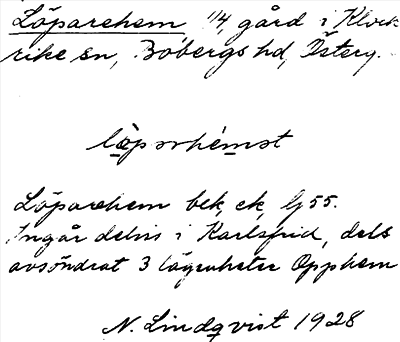 Löparehem 1/4, gård i Klock
rike sn, Bobergs hd, Österg.
lö̀pørhémst
Löparehem bek, ek, Gj 55.
Ingår delvis i Karlsfrid, dels
avsöndrat 3 lägenheter Opphem
N. Lindqvist 1928